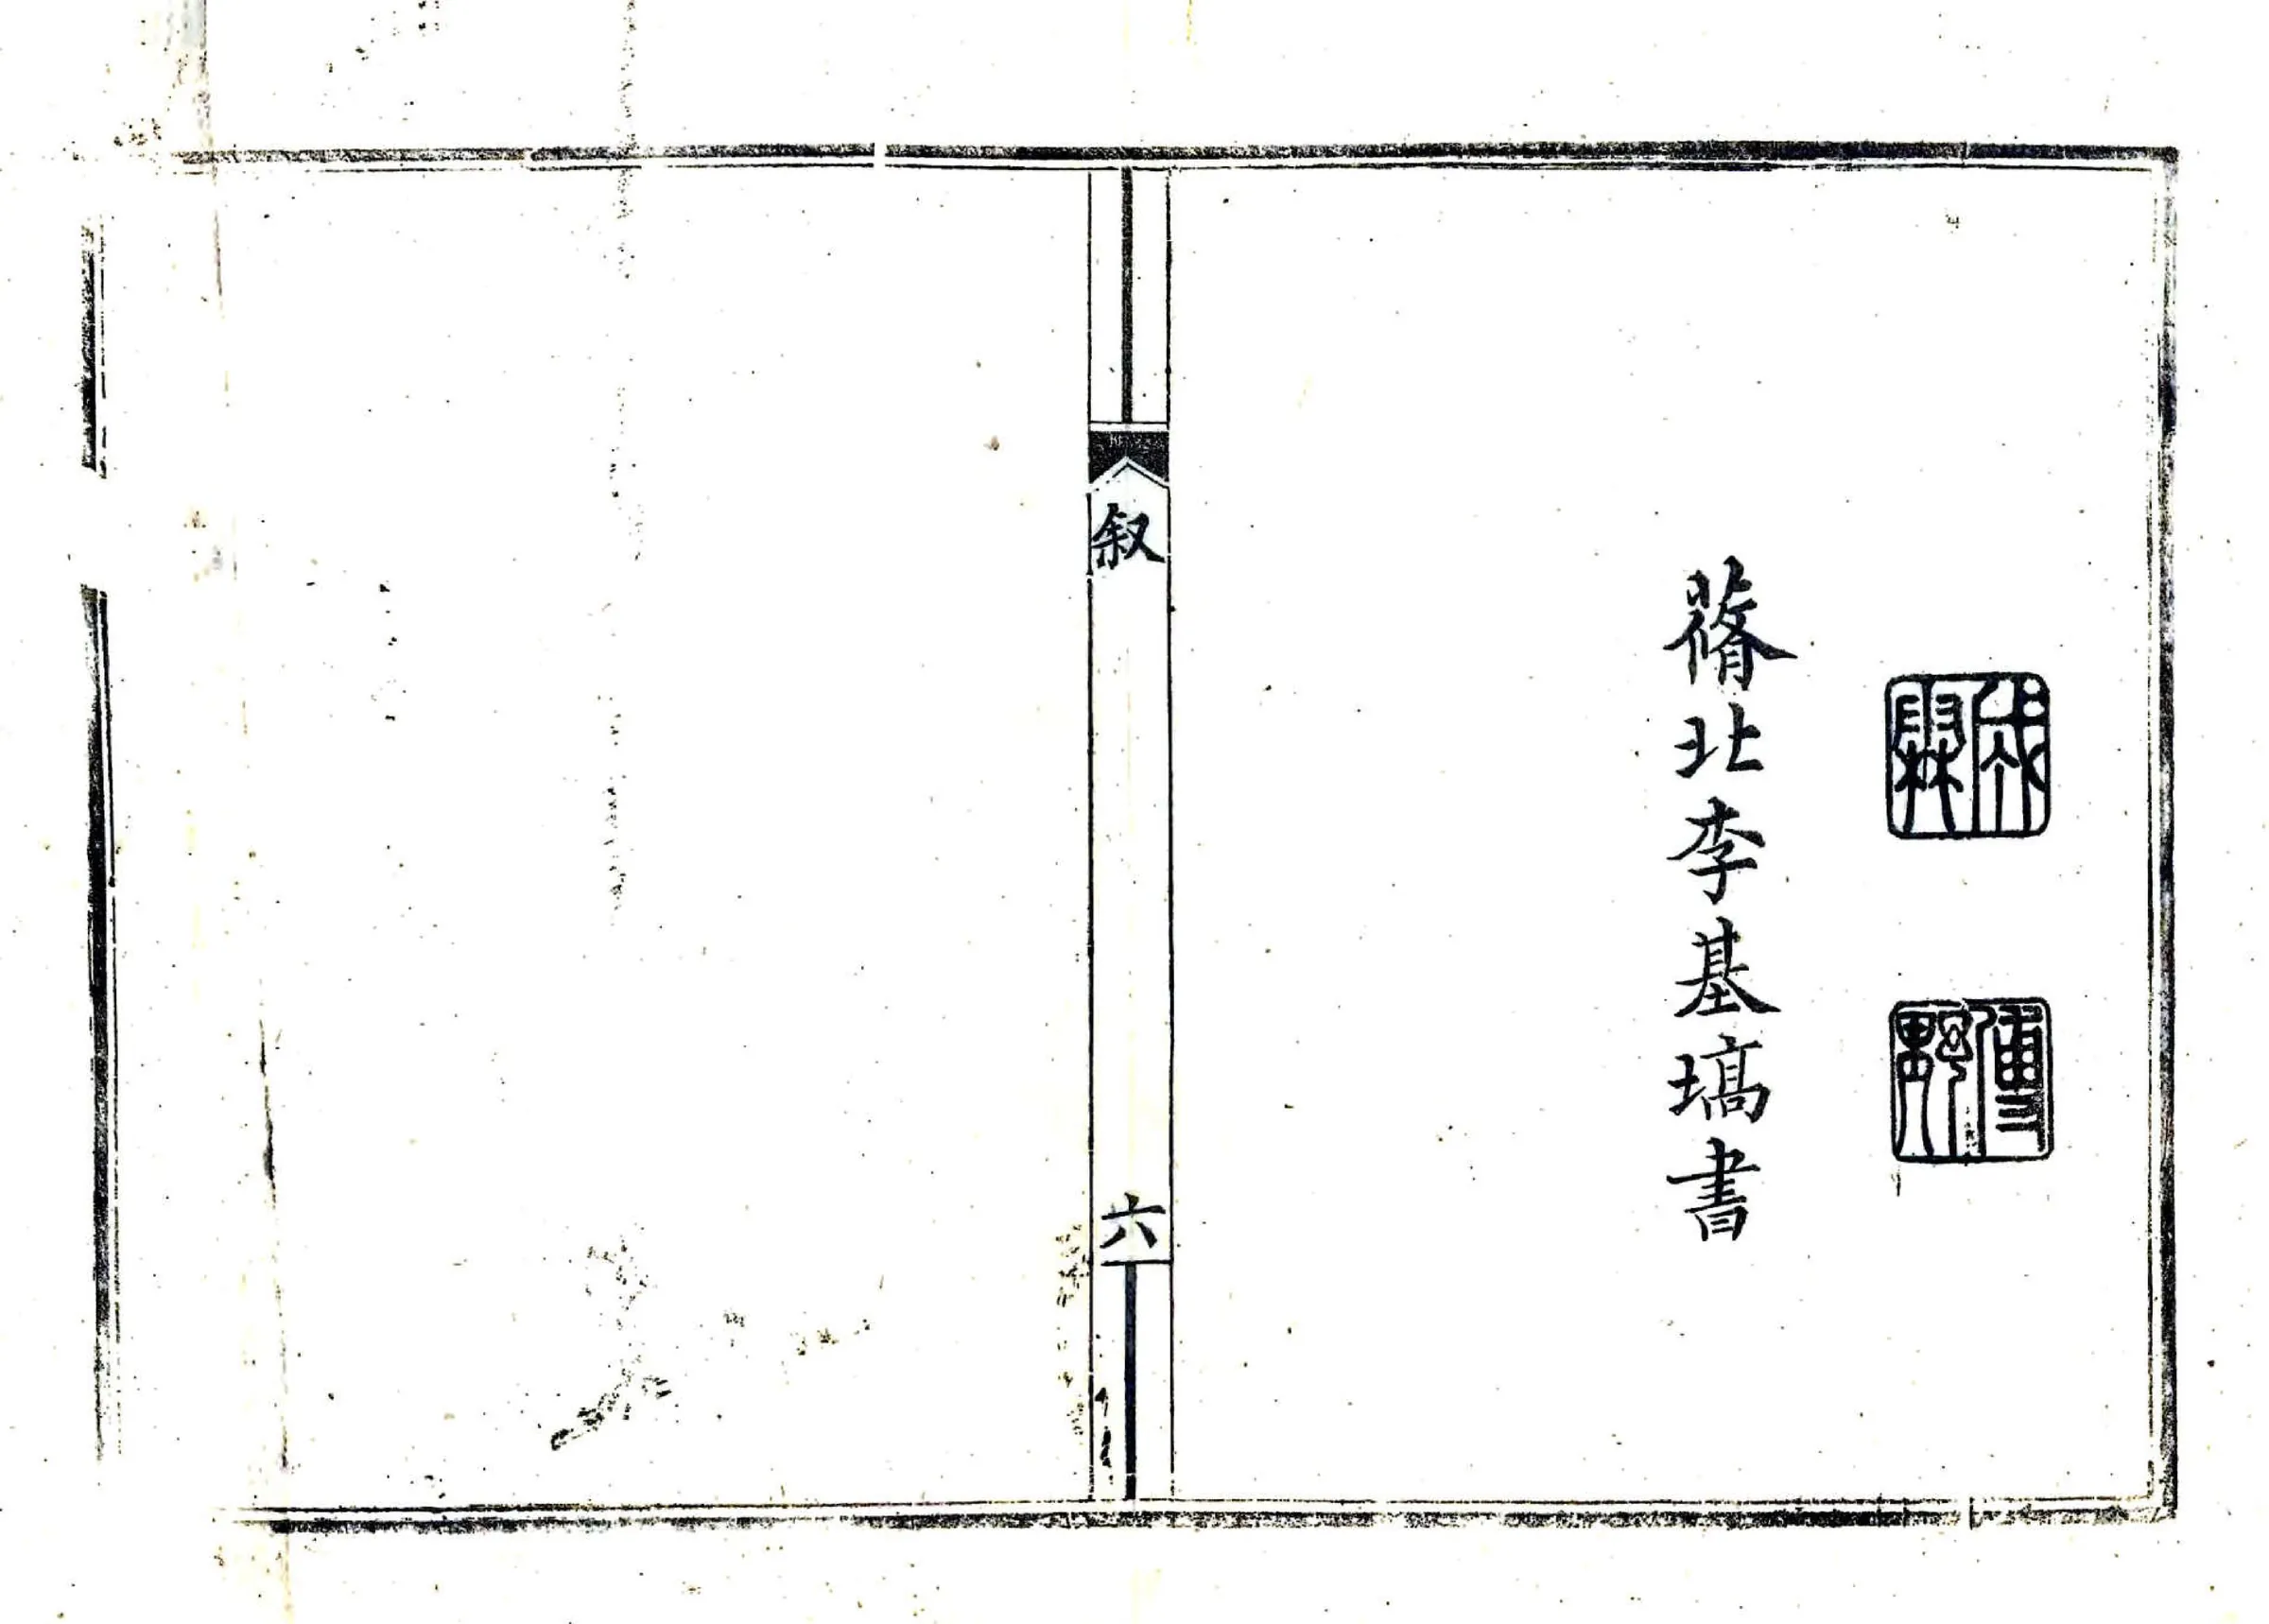 蓨北李基塙書
叙
六